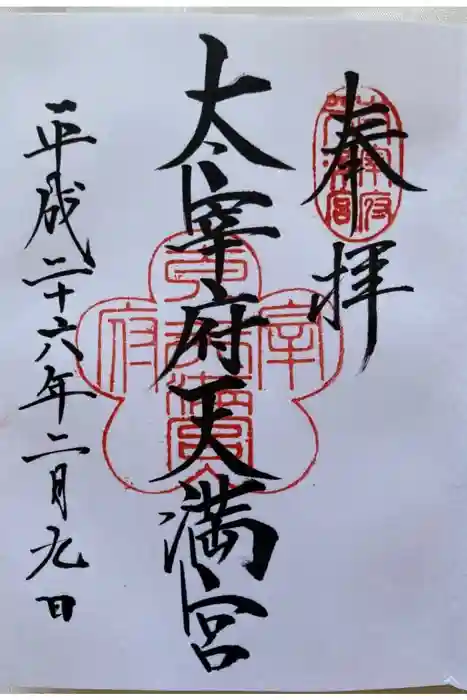 奉拝
太宰府天満宮
平成二十六年二月九日